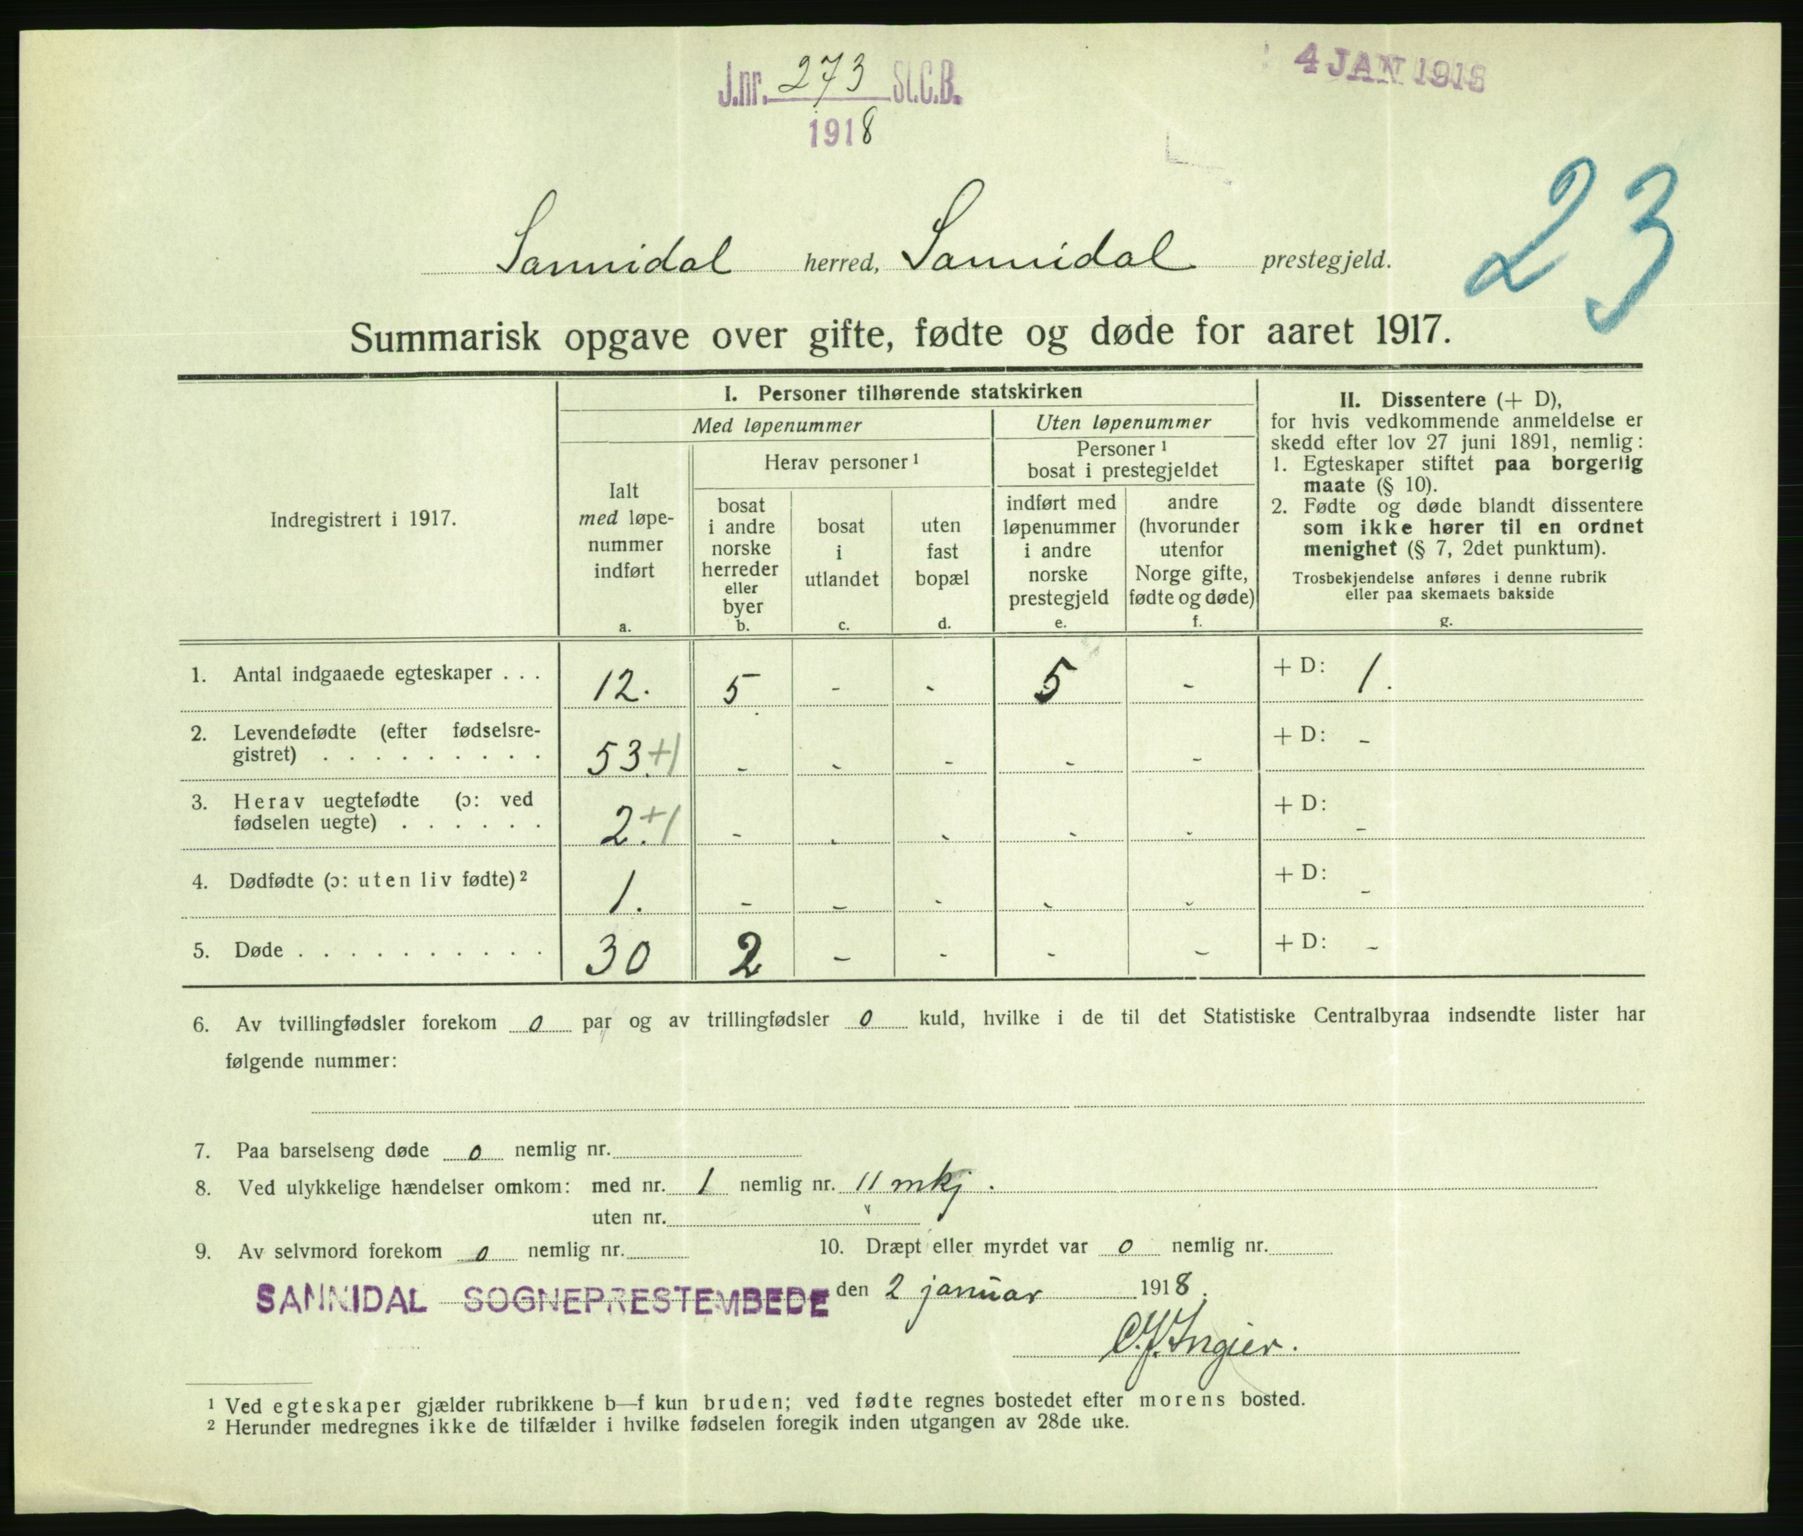 J.nr. 273 St.C.B.
1918
4 JAN 1918
23
Sannidal herred, Sannidal prestegjeld.
Summarisk opgave over gifte, fødte og døde for aaret 1917.
Indregistrert i 1917.
I. Personer tilhørende statskirken
Med løpenummer
Uten løpenummer
Ialt
med løpe-
nummer
indført
a.
Herav personer¹
bosat
i andre
norske
herreder
eller
byer
b.
bosat
i
utlandet
c.
uten
fast
bopæl
d.
Personer¹
bosat i prestegjeldet
indført med
løpenummer
i andre
norske
prestegjeld
e.
andre
(hvorunder
utenfor
Norge gifte,
fødte og døde)
f.
II. Dissentere (+ D),
for hvis vedkommende anmeldelse er
skedd efter lov 27 juni 1891, nemlig:
1. Egteskaper stiftet paa borgerlig
maate (§ 10).
2. Fødte og døde blandt dissentere
som ikke hører til en ordnet
menighet (§ 7, 2det punktum).
Trosbekjendelse anføres i denne rubrik
eller paa skemaets bakside
g.
1. Antal indgaaede egteskaper . . . 12. 5 - - 5 - + D: 1.
2. Levendefødte (efter fødselsre-
gistret) . . . . . . . . . 53.+1 - - - - - + D: -
3. Herav uegtefødte (ɔ: ved
fødselen uegte) . . . . . . 2.+1 - - - - - + D: -
4. Dødfødte (ɔ: uten liv fødte)² 1. - - - - - + D: -
5. Døde . . . . . . . . . . 30 2 - - - - + D: -
6. Av tvillingfødsler forekom 0 par og av trillingfødsler 0 kuld, hvilke i de til det Statistiske Centralbyraa indsendte lister har
følgende nummer:
7. Paa barselseng døde 0 nemlig nr.
8. Ved ulykkelige hændelser omkom: med nr. 1 nemlig nr. 11 mkj.
uten nr. "
9. Av selvmord forekom 0 nemlig nr. 10. Dræpt eller myrdet var 0 nemlig nr.
SANNIDAL SOGNEPRESTEMBEDE den 2 januar 1918.
C.J. Ingier.
¹ Ved egteskaper gjælder rubrikkene b—f kun bruden; ved fødte regnes bostedet efter morens bosted.
² Herunder medregnes ikke de tilfælder i hvilke fødselen foregik inden utgangen av 28de uke.